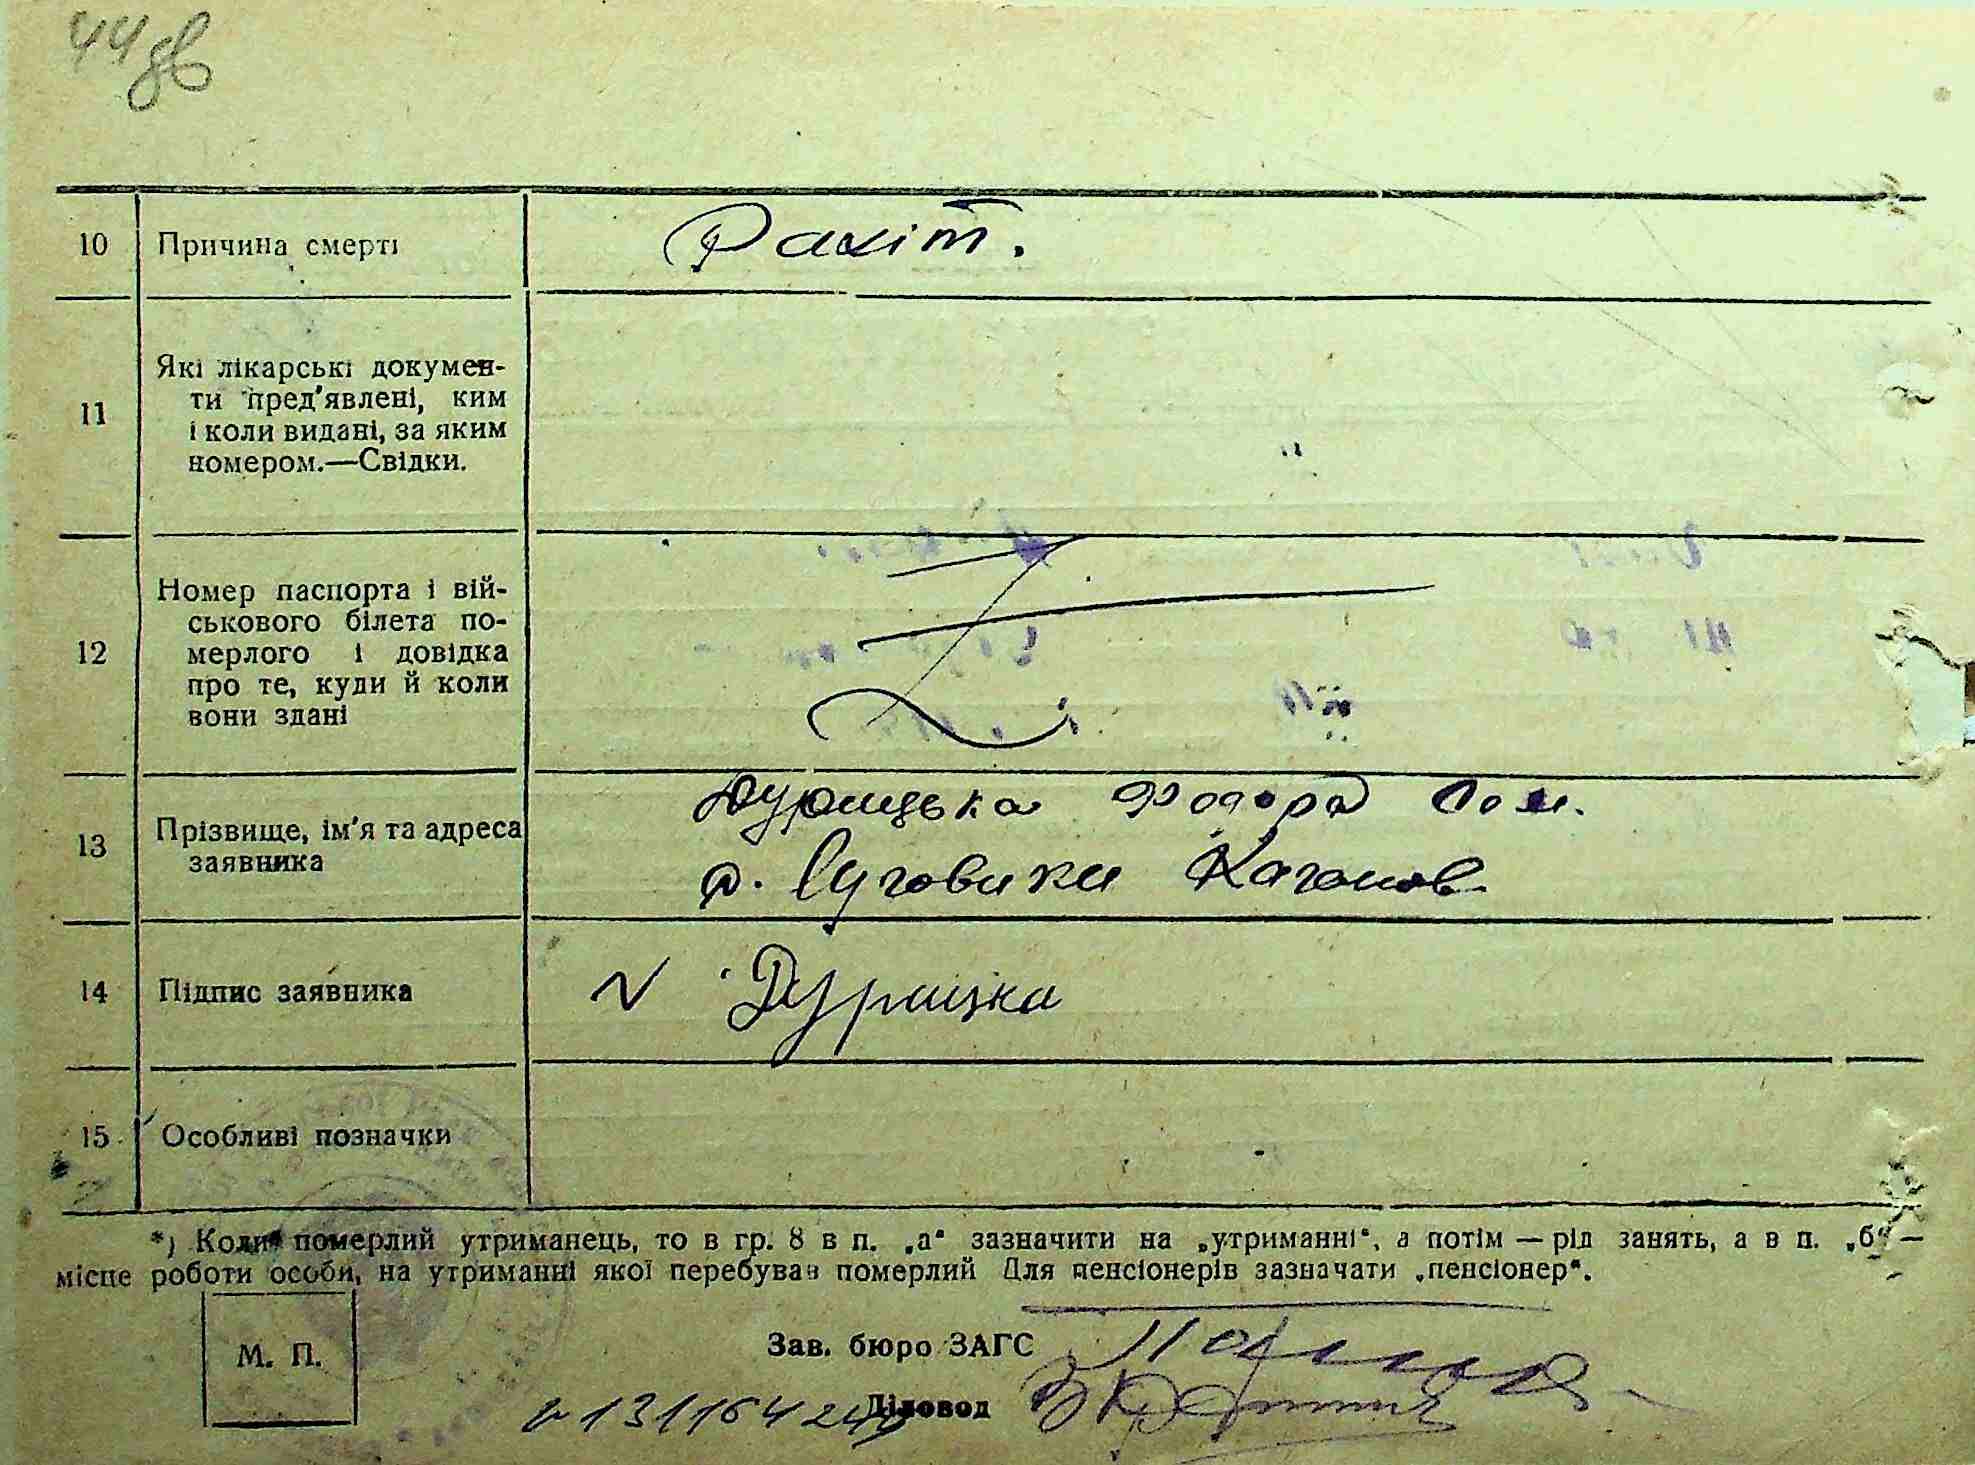 44зв
10 Причина смерті Рахіт.
11 Які лікарські докумен-
ти пред'явлені, ким
і коли видані, за яким
номером.—Свідки.
"
12 Номер паспорта і вій-
ськового білета по-
мерлого і довідка
про те, куди й коли
вони здані
13 Прізвище, ім'я та адреса
заявника
Дурицька Федора
с. Луговики Каганов.
14 Підпис заявника Дурицка
15 Особливі позначки
*) Коли померлий утриманець, то в гр. 8 в п. „а“ зазначити на „утриманні“, а потім — рід занять, а в п. „б“ —
місце роботи особи, на утриманні якої перебував померлий Для пенсіонерів зазначати „пенсіонер“.
М. П.
Зав. бюро ЗАГС
Діловод